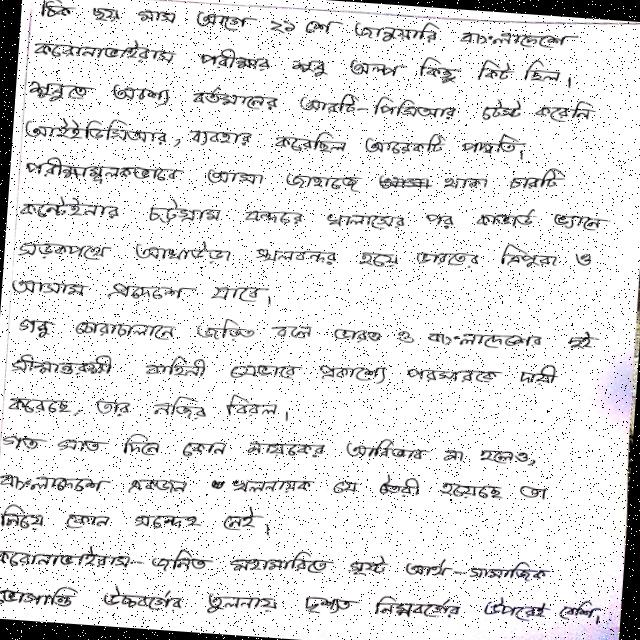 ঠিক ছয় মাস আগে ২১ শে জানুয়ারি বাংলাদেশে
করোনাভাইরাস পরীক্ষার শুধু অল্প কিছু কিট ছিল।
শুরুতে অবশ্য বর্তমানের আরটি-পিসিআর টেস্ট করেনি
আইইডিসিআর, ব্যবহার করেছিল আরেকটি পদ্ধতি।
পরীক্ষামূলকভাবে আসা জাহাজে থাকা চারটি
কন্টেইনার চট্টগ্রাম বন্দরে খালাসের পর কাভার্ড ভ্যানে
সড়কপথে আখাউড়া স্থলবন্দর হয়ে ভারতের ত্রিপুরা ও
আসাম প্রদেশে যাবে।
গরু চোরাচালানে জড়িত বলে ভারত ও বাংলাদেশের দুই
সীমান্তরক্ষী বাহিনী যেভাবে প্রকাশ্যে পরস্পরকে দায়ী
করেছে, তার নজির বিরল।
গত সাত দিনে কোন নায়কের আবির্ভাব না হলেও,
বাংলাদেশে একজন খলনায়ক যে তৈরী হয়েছে তা
নিয়ে কোন সন্দেহ নেই।
করোনাভাইরাস-জনিত মহামারিতে সৃষ্ট আর্থ-সামাজিক
ভোগান্তি উচ্চবর্গের তুলনায় দৃশ্যত নিম্নবর্গের উপরেই বেশি।